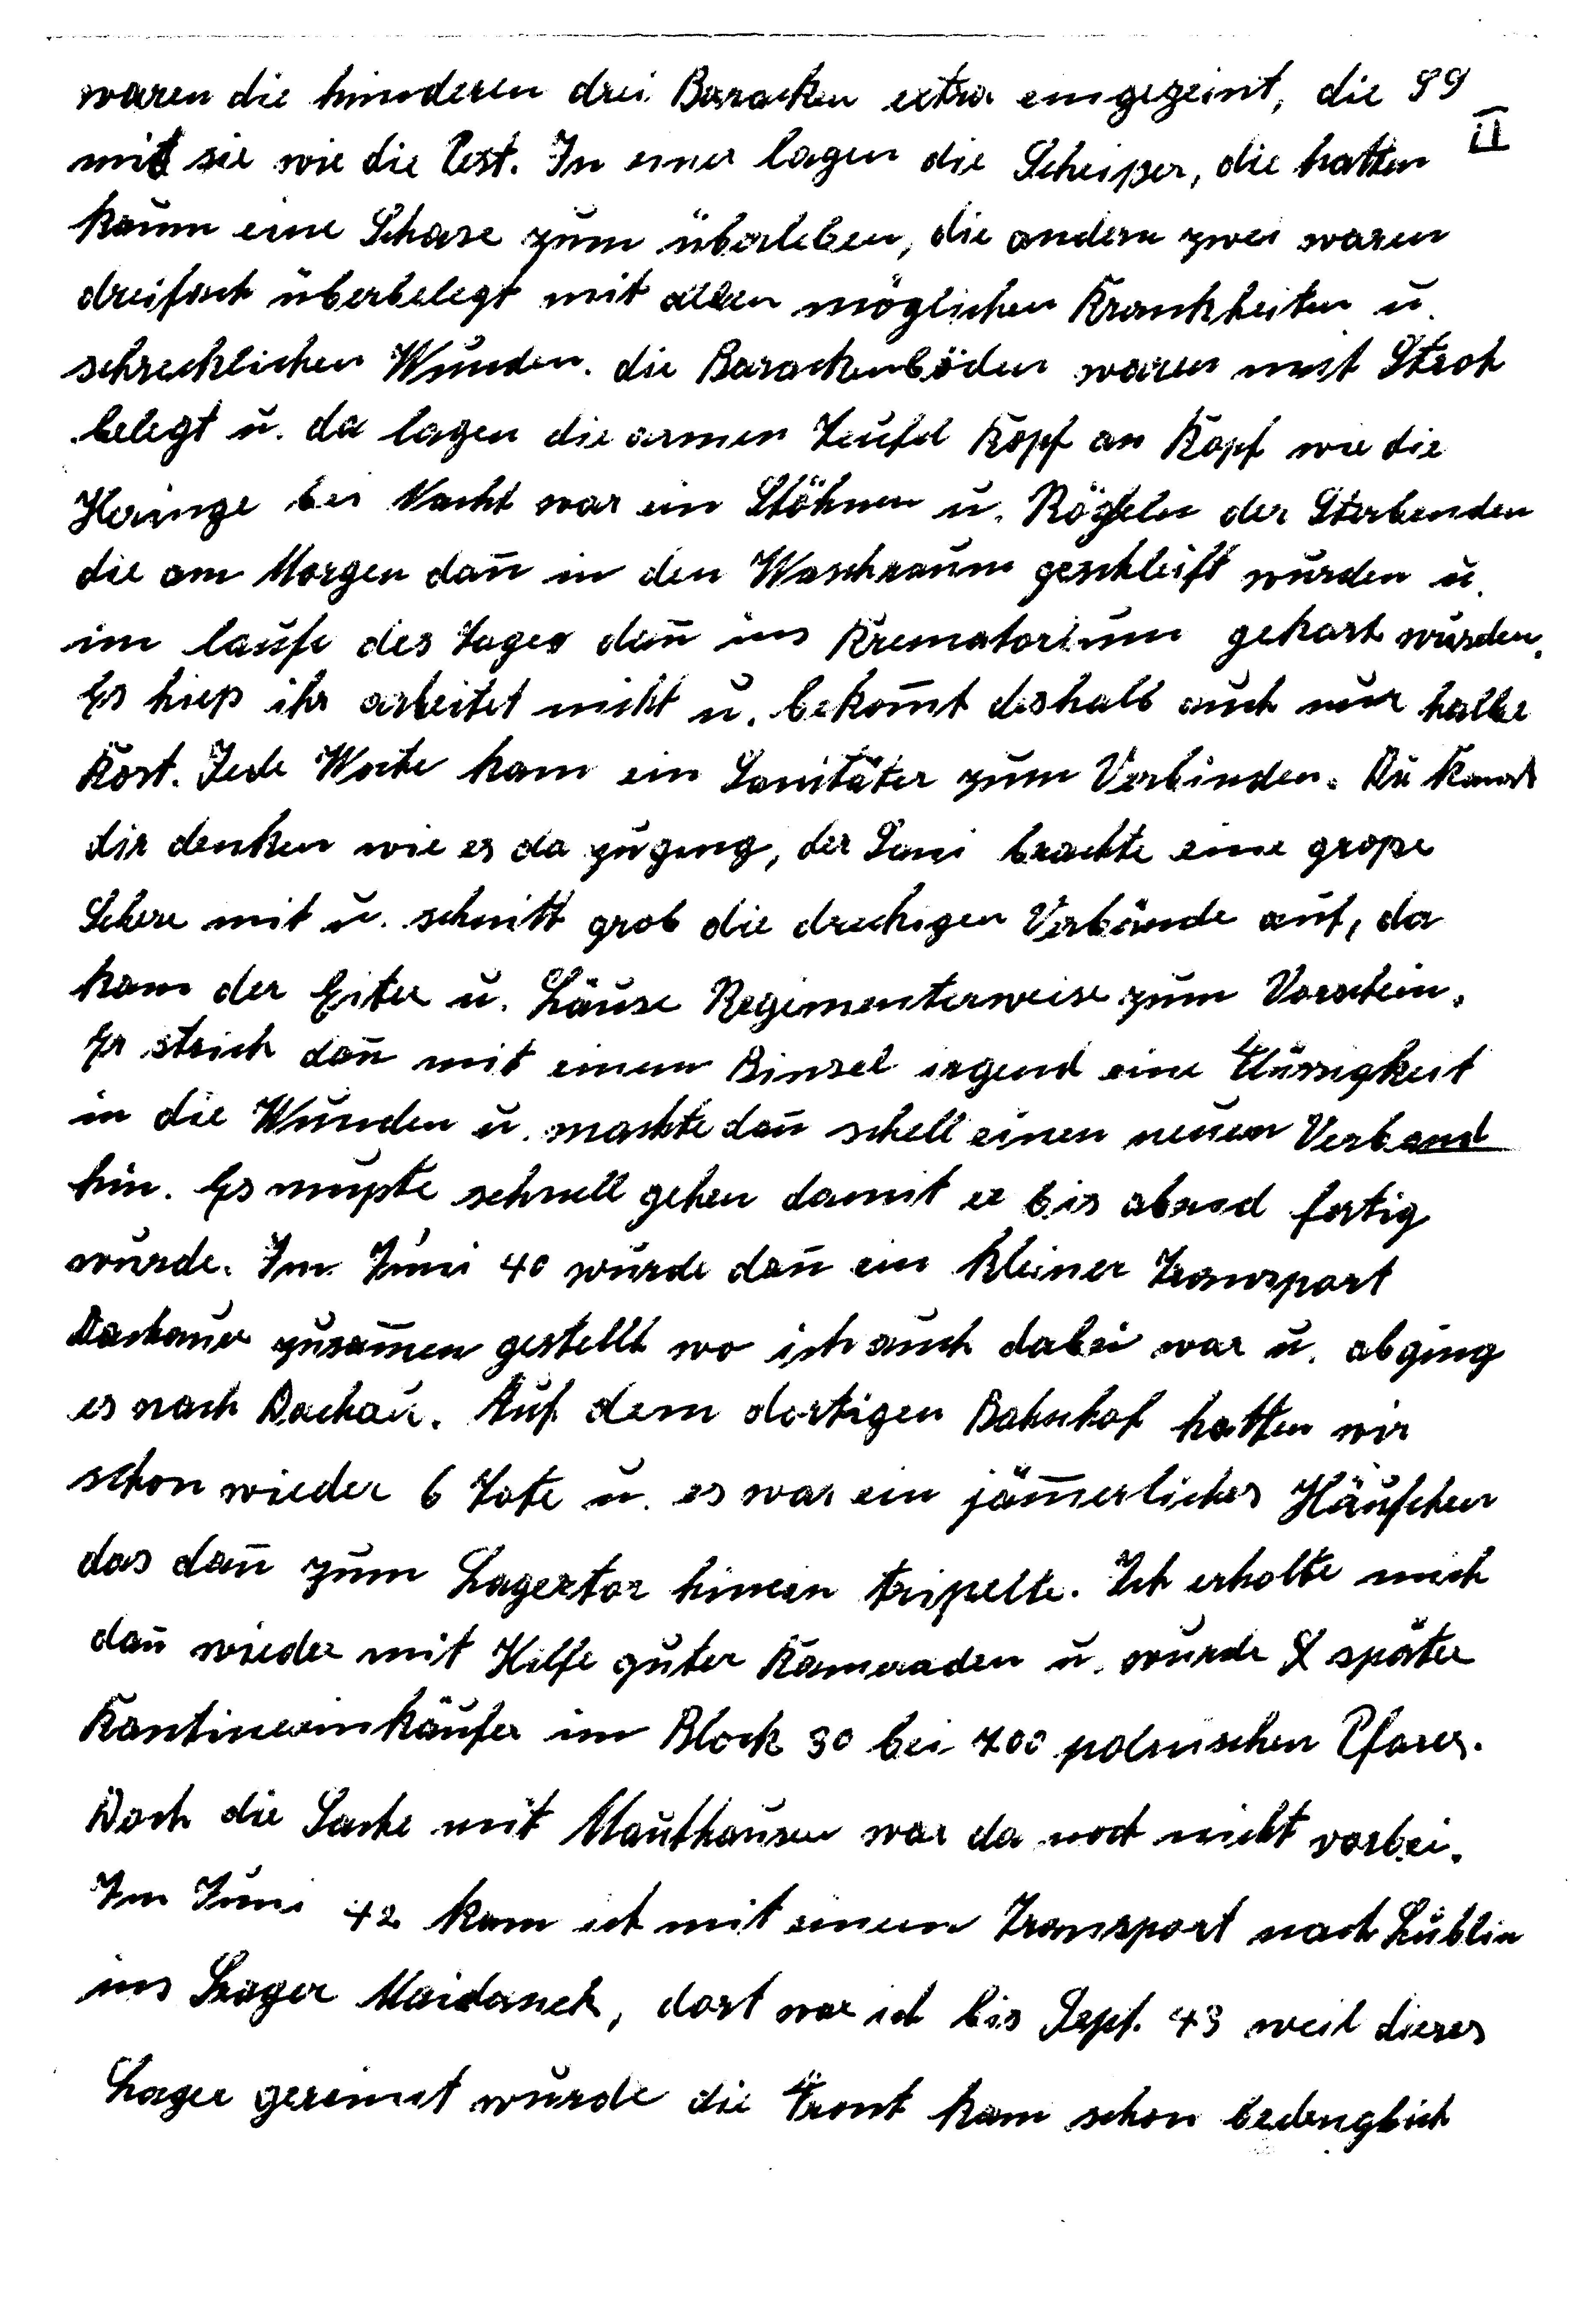 waren die hinderen drei Baracken extra eingezeint, die SS
II
mid sie wie die Pest. In einer lagen die Scheißer, die hatten
kaum eine Schase zum überleben, die andern zwei waren
dreifach überbelegt mit allen möglichen Krankheiten u.
schrecklichen Wunden. die Barackenböden waren mit Stroh
belegt u. da lagen die armen Teufel Kopf an Kopf wie die
Heringe bei Nacht war ein Stöhnen u. Rögeln der Sterbenden
die am Morgen dan̄ in den Waschraum geschleift wurden u.
im laufe des Tages dan̄ ins Krematorium gekart wurden.
Es hieß ihr arbeitet nicht u. bekom̄t deshalb auch nur halbe
Kost. Jede Woche kam ein Sanitäter zum Verbinden. Du kanst
dir denken wie es da zuging, der Sani brachte eine große
Schere mit u. schnitt grob die dreckigen Verbände auf, da
kam der Eiter u. Läuse Regimenterweise zum Vorschein.
Er strich dan̄ mit einem Binsel irgend eine Flüssigkeit
in die Wunden u. machte dan̄ schell einen neuen Verband
hin. Es mußte schnell gehen damit er bis abend fertig
wurde. Im Juni 40 wurde dan̄ ein kleiner Transport
Dachauer zusam̄en gestellt wo ich auch dabei war u. abging
es nach Dachau. Auf dem dortigen Bahnhof hatten wir
schon wieder 6 Tote u. es war ein jäm̄erliches Häufchen
das dan̄ zum Lagertor hinein tripelte. Ich erholte mich
dan̄ wieder mit Hilfe guter Kameraden u. wurde später
Kantineeinkäufer im Block 30 bei 700 polnischen Pfarer.
Doch die Sache mit Mauthausen war da noch nicht vorbei.
Im Juni 42 kam ich mit einem Transport nach Lublin
ins Lager Maidanek, dort war ich bis Sept. 43 weil dieses
Lager gereimt wurde die Front kam schon bedenglich